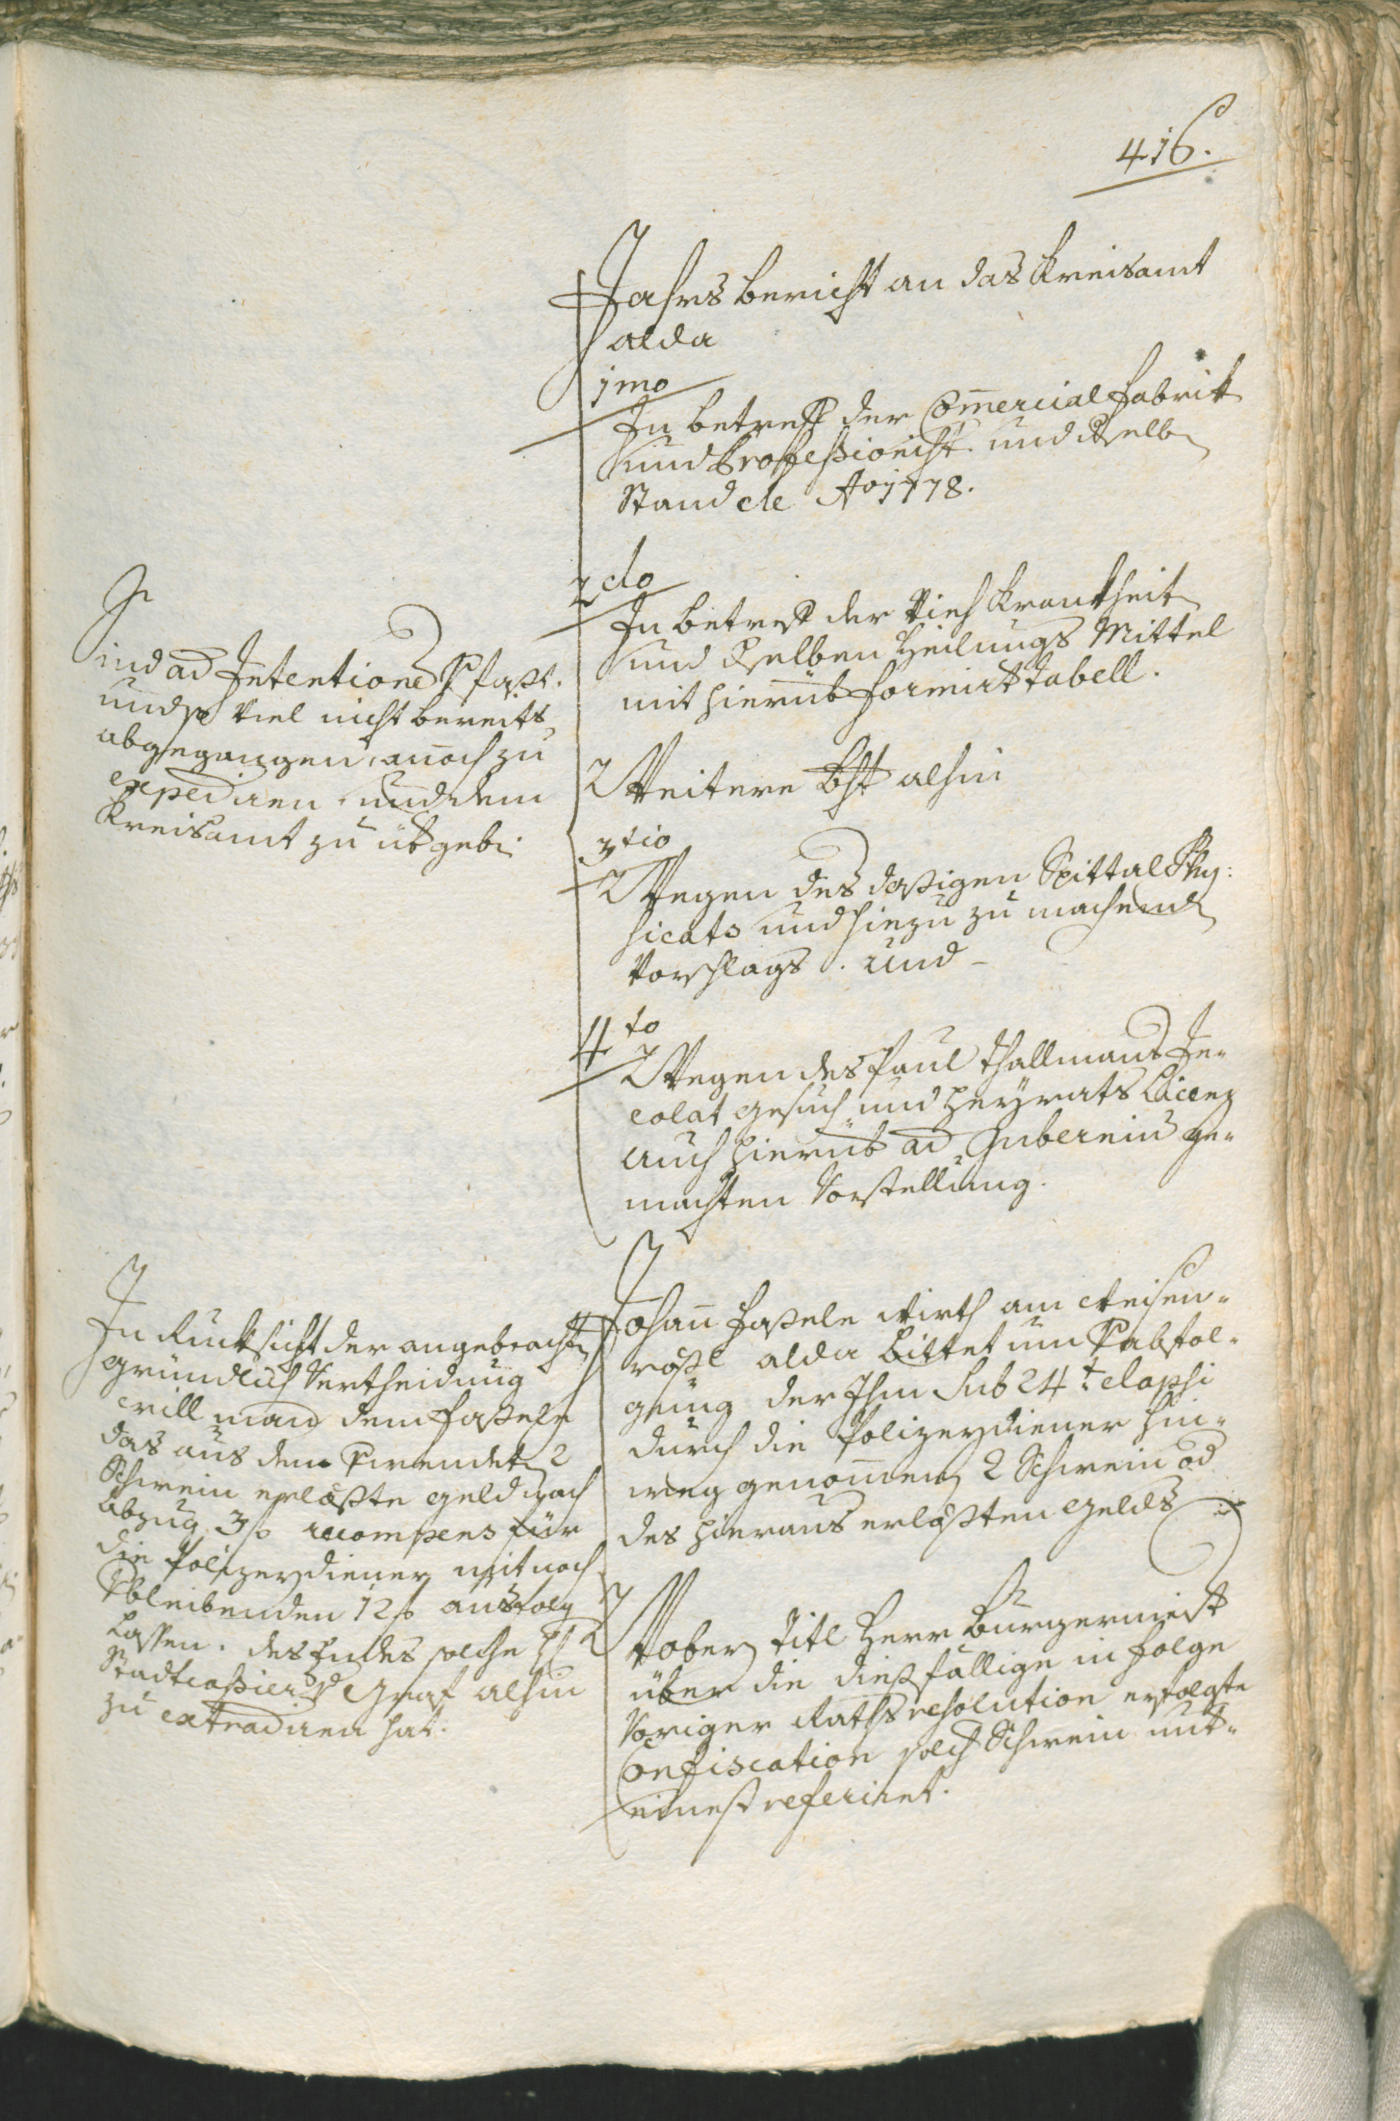 416.
Jahrs bericht an das Kreisamt
alda
1mo
In betreff der Com̅ercial fabrik
und Professionist. und dselben
Stand de Ao 1778.
2do
In betreff der Vieh Krankheit
und dselben Heilungs Mittel
mit hierüb formirt tabell.
Weitere bht alhin
3tio
Wegen des dasigen Spittal Phÿ:
sicats und hinzu zu machenden
Vorschlags. und
4to
Wegen des Paul Thallmans In-
colat gesuch und heÿrats Licenz
auch hierüb ad Guberniū ge-
machten Vorstellung.
Sind ad Intentione gfast.
und so viel nicht bereits
abgegangen, an̅och zu
expediren und dem
Kreisamt zu übgeben
Johan̅ Faßele Wirth am Weisen-
rößl alda bittet um Vabfol-
gung der Ihm sub 24t. elapsi
durch die Polizeÿdiener hin-
weg genom̅enen 2 Schwein od
des hieraus erlößten gelds
Wobeÿ Titl Herr Burgermeist
über die dießfällige in folge
Voriger Raths resolution erfolgte
Confiscation solch Schwein mit-
einest referiret.
In Rucksicht der angebrachten
gründlich Vertheidung
will man dem Faßele
das aus den 2
Schwein erlößte geld nach
Abzug 3f recompens für
die Polizeÿdiener mit noch
Vbleibenden 12f ausfolg
lassen. des Endes solche H
Stadtcassier Graf alhin
zu extradiren hat.